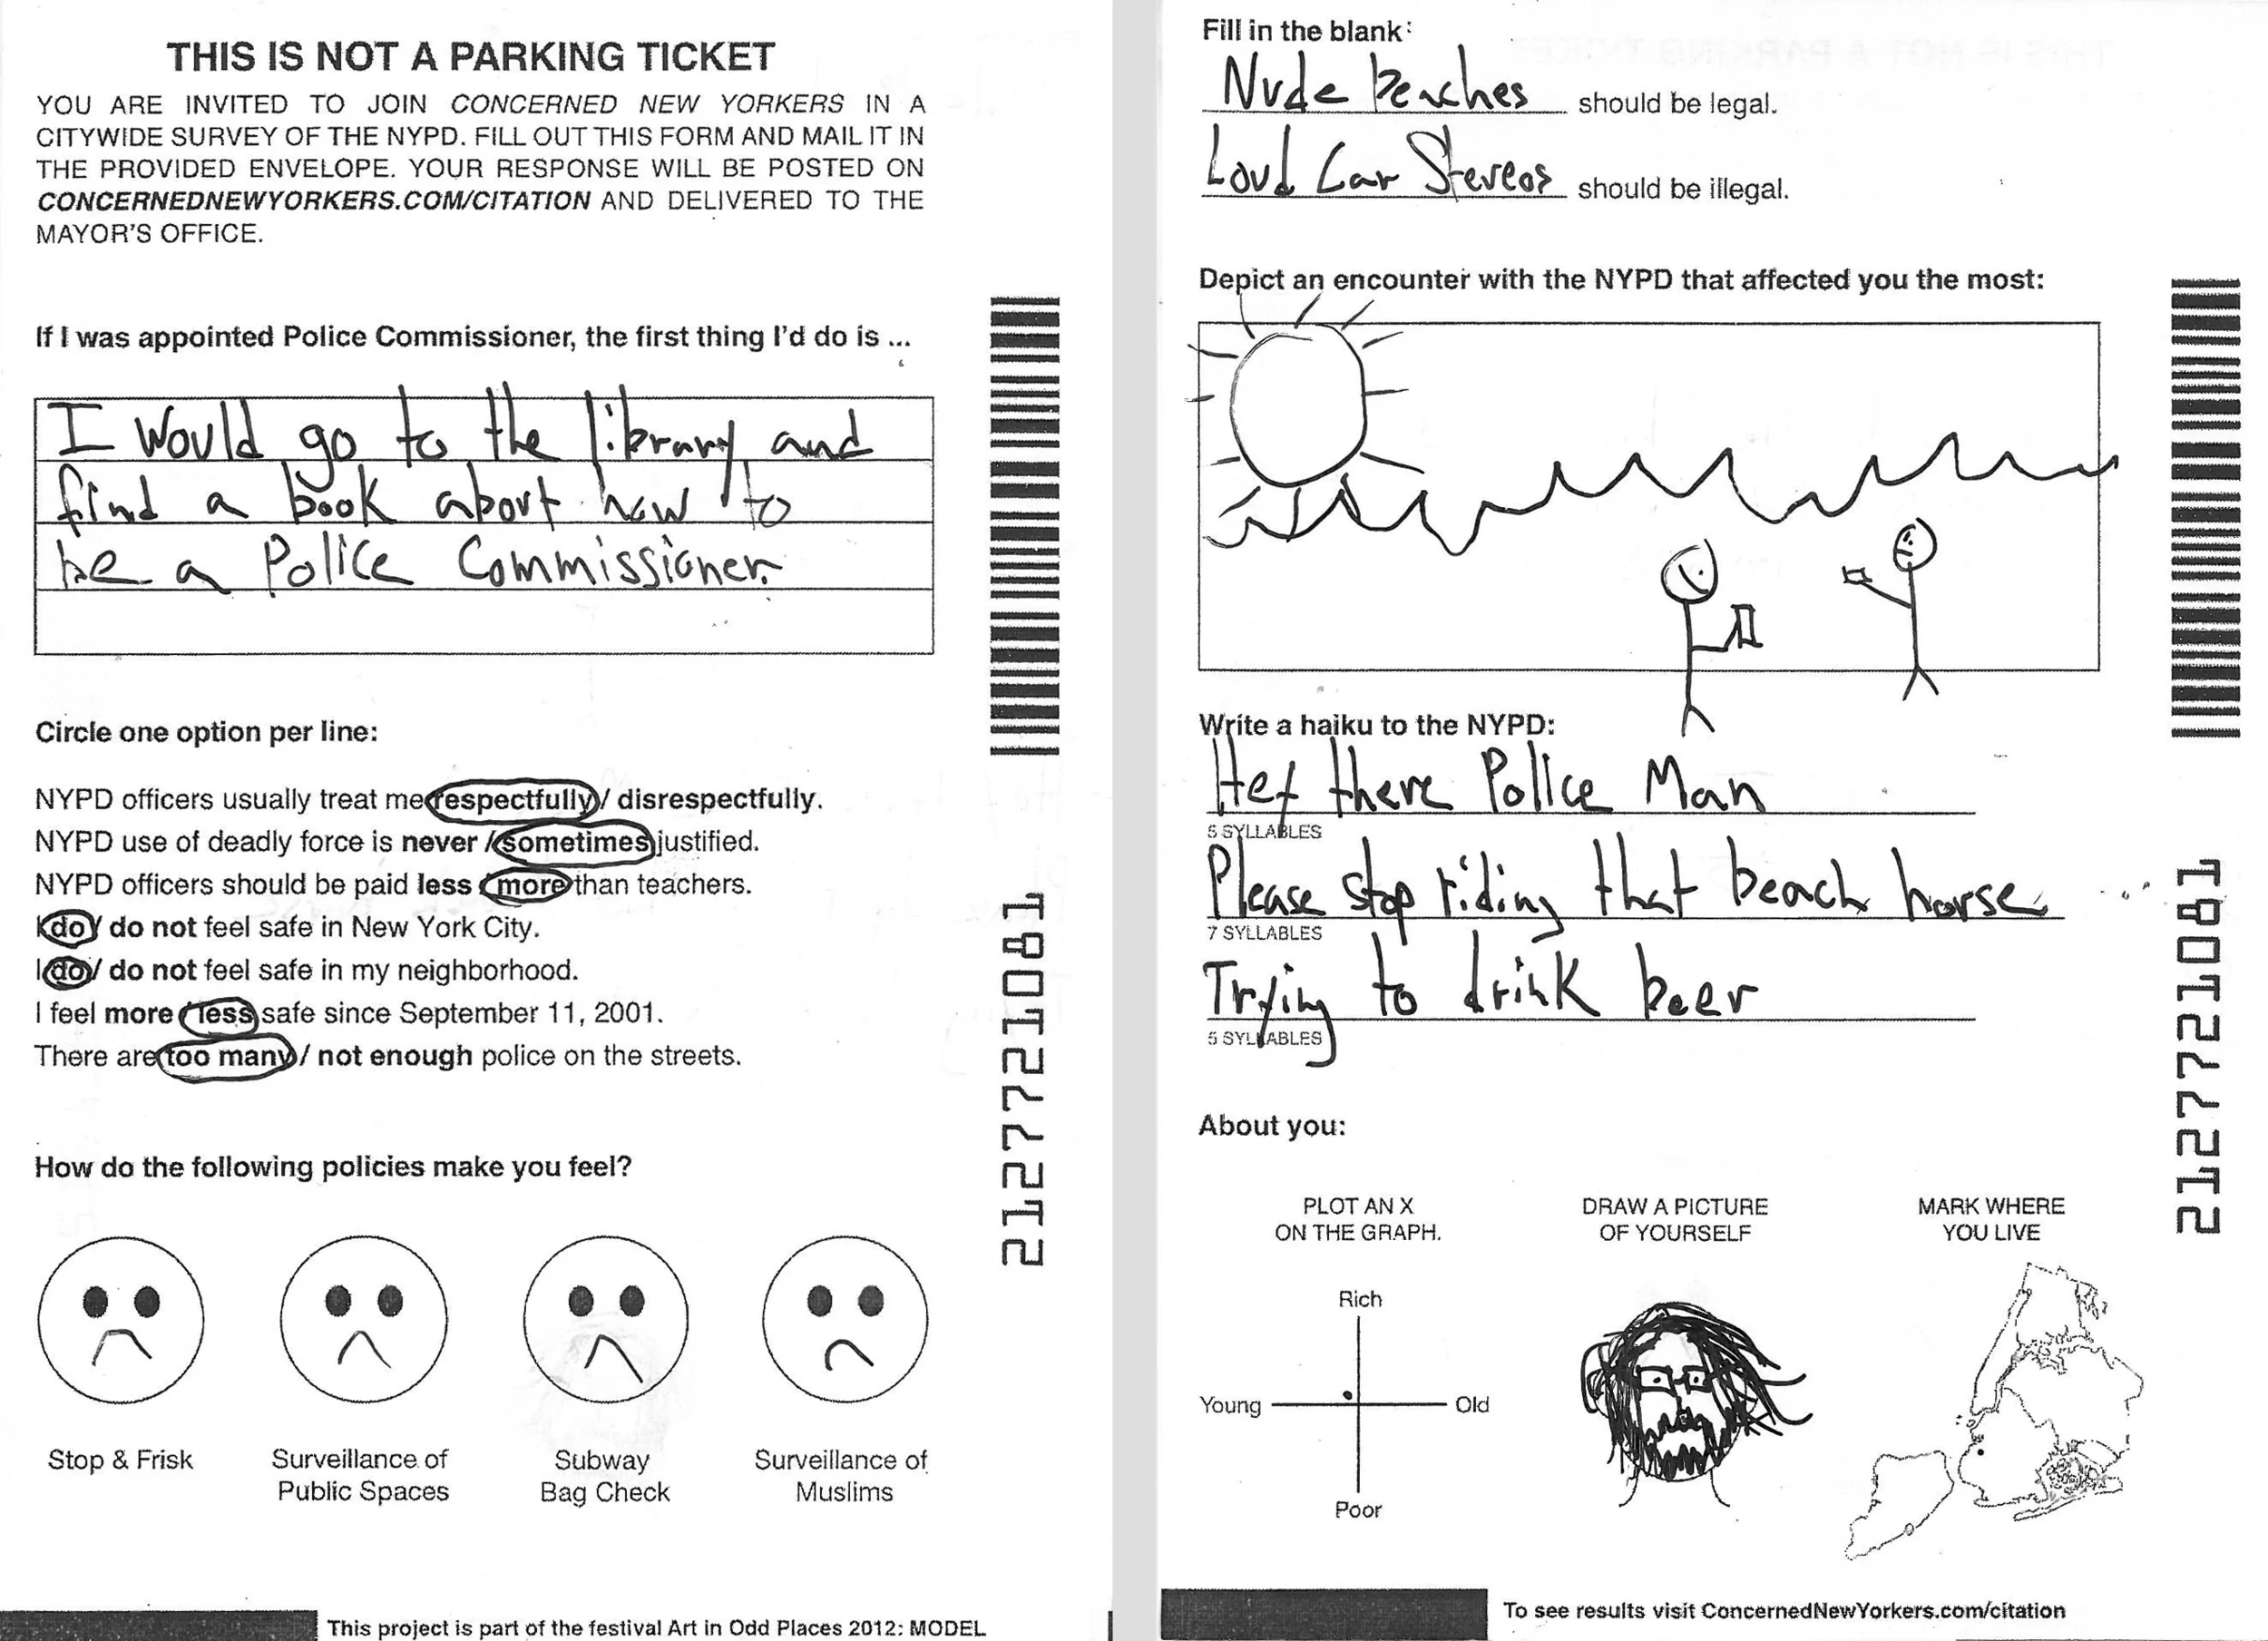 THIS IS NOT A PARKING TICKET
YOU ARE INVITED TO JOIN CONCERNED NEW YORKERS IN A
CITYWIDE SURVEY OF THE NYPD. FILL OUT THIS FORM AND MAIL IT IN
THE PROVIDED ENVELOPE. YOUR RESPONSE WILL BE POSTED ON
CONCERNEDNEWYORKERS.COM/CITATION AND DELIVERED TO THE
MAYOR'S OFFICE.
If I was appointed Police Commissioner, the first thing I'd do is ...
I would go to the library and
find a book about how to
be a Police Commissioner.
Circle one option per line:
NYPD officers usually treat me respectfully / disrespectfully.
NYPD use of deadly force is never / sometimes justified.
NYPD officers should be paid less / more than teachers.
I do / do not feel safe in New York City.
I do / do not feel safe in my neighborhood.
I feel more / less safe since September 11, 2001.
There are too many / not enough police on the streets.
How do the following policies make you feel?
Stop & Frisk
Surveillance of
Public Spaces
Subway
Bag Check
Surveillance of
Muslims
2127721081
This project is part of the festival Art in Odd Places 2012: MODEL
Fill in the blank:
Nude beaches should be legal.
Loud Car Stereos should be illegal.
Depict an encounter with the NYPD that affected you the most:
Write a haiku to the NYPD:
Hey there Police Man
5 SYLLABLES
Please stop riding that beach horse
7 SYLLABLES
Trying to drink beer
5 SYLLABLES
About you:
PLOT AN X
ON THE GRAPH.
Rich
Young
Old
Poor
DRAW A PICTURE
OF YOURSELF
MARK WHERE
YOU LIVE
2127721081
To see results visit ConcernedNewYorkers.com/citation